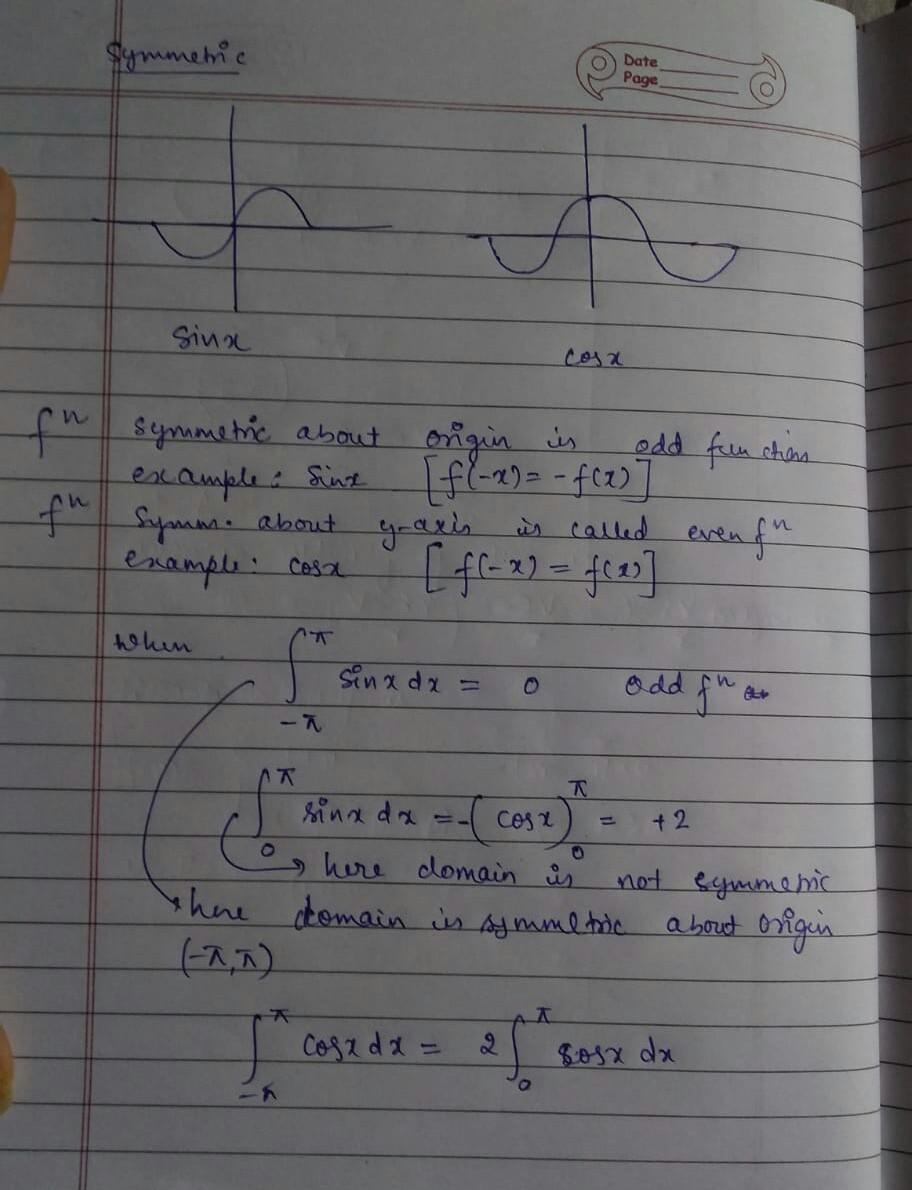 Symmetric
Date
Page
sinx
cosx
fⁿ symmetric about origin is odd function
example : Sinx [f(-x) = -f(x)]
fⁿ Symm. about y-axis is called even fⁿ
example : cosx [f(-x) = f(x)]
When ∫_{-π}^{π} sinx dx = 0 Odd fⁿ
∫_{0}^{π} sinx dx = -(cosx)_{0}^{π} = +2
here domain is not symmetric
here domain is symmetric about origin
(-π, π)
∫_{-π}^{π} cosx dx = 2 ∫_{0}^{π} cosx dx